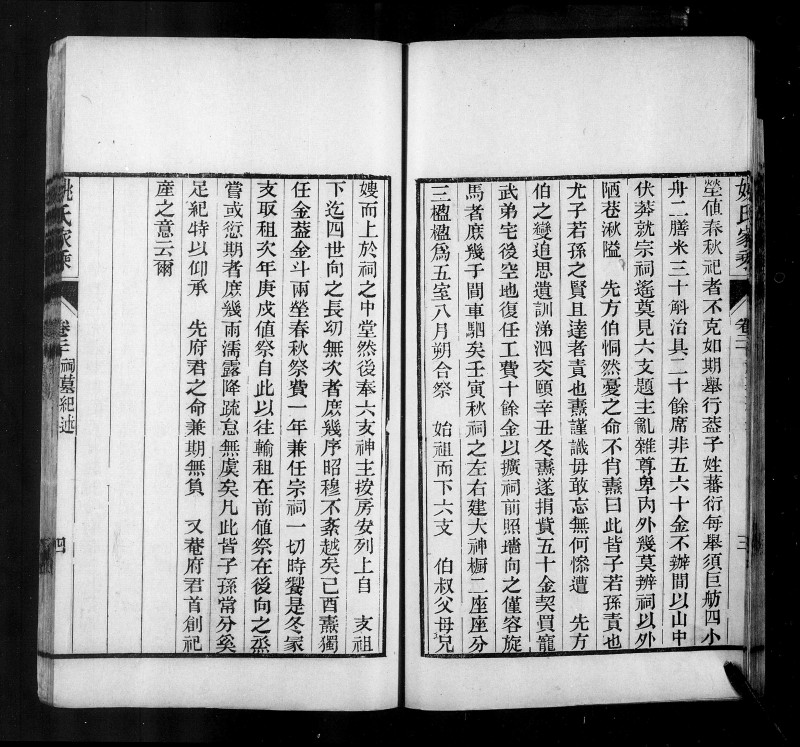 姚氏家乘
卷二
三
塋值春秋祀者不克如期舉行葢子姓蕃衍每舉須巨舫四小
舟二膳米三十斛治具二十餘席非五六十金不辦間以山中
伏莽就宗祠遙奠見六支題主亂雜尊卑內外幾莫辨祠以外
陋巷湫隘 先方伯恫然憂之命不肖燾曰此皆子若孫責也
尤子若孫之賢且達者責也燾謹識毋敢忘無何慘遭 先方
伯之變追思遺訓涕泗交頤辛丑冬燾遂捐貲五十金契買寵
武弟宅後空地復任工費十餘金以擴祠前照墻向之僅容旋
馬者庶幾于間車駟矣壬寅秋祠之左右建大神櫥二座座分
三楹楹爲五室八月朔合祭 始祖而下六支 伯叔父母兄
嫂而上於祠之中堂然後奉六支神主按房安列上自 支祖
下迄四世向之長幼無次者庶幾序昭穆不紊越矣己酉燾獨
任金葢金斗兩塋春秋祭費一年兼任宗祠一切時饗是冬冡
支取租次年庚戌值祭自此以往輸租在前值祭在後向之烝
嘗或愆期者庶幾雨濡露降疏怠無虞矣凡此皆子孫常分奚
足紀特以仰承 先府君之命兼期無負 又菴府君首創祀
產之意云爾
姚氏家乘
卷二 祠墓紀述
四